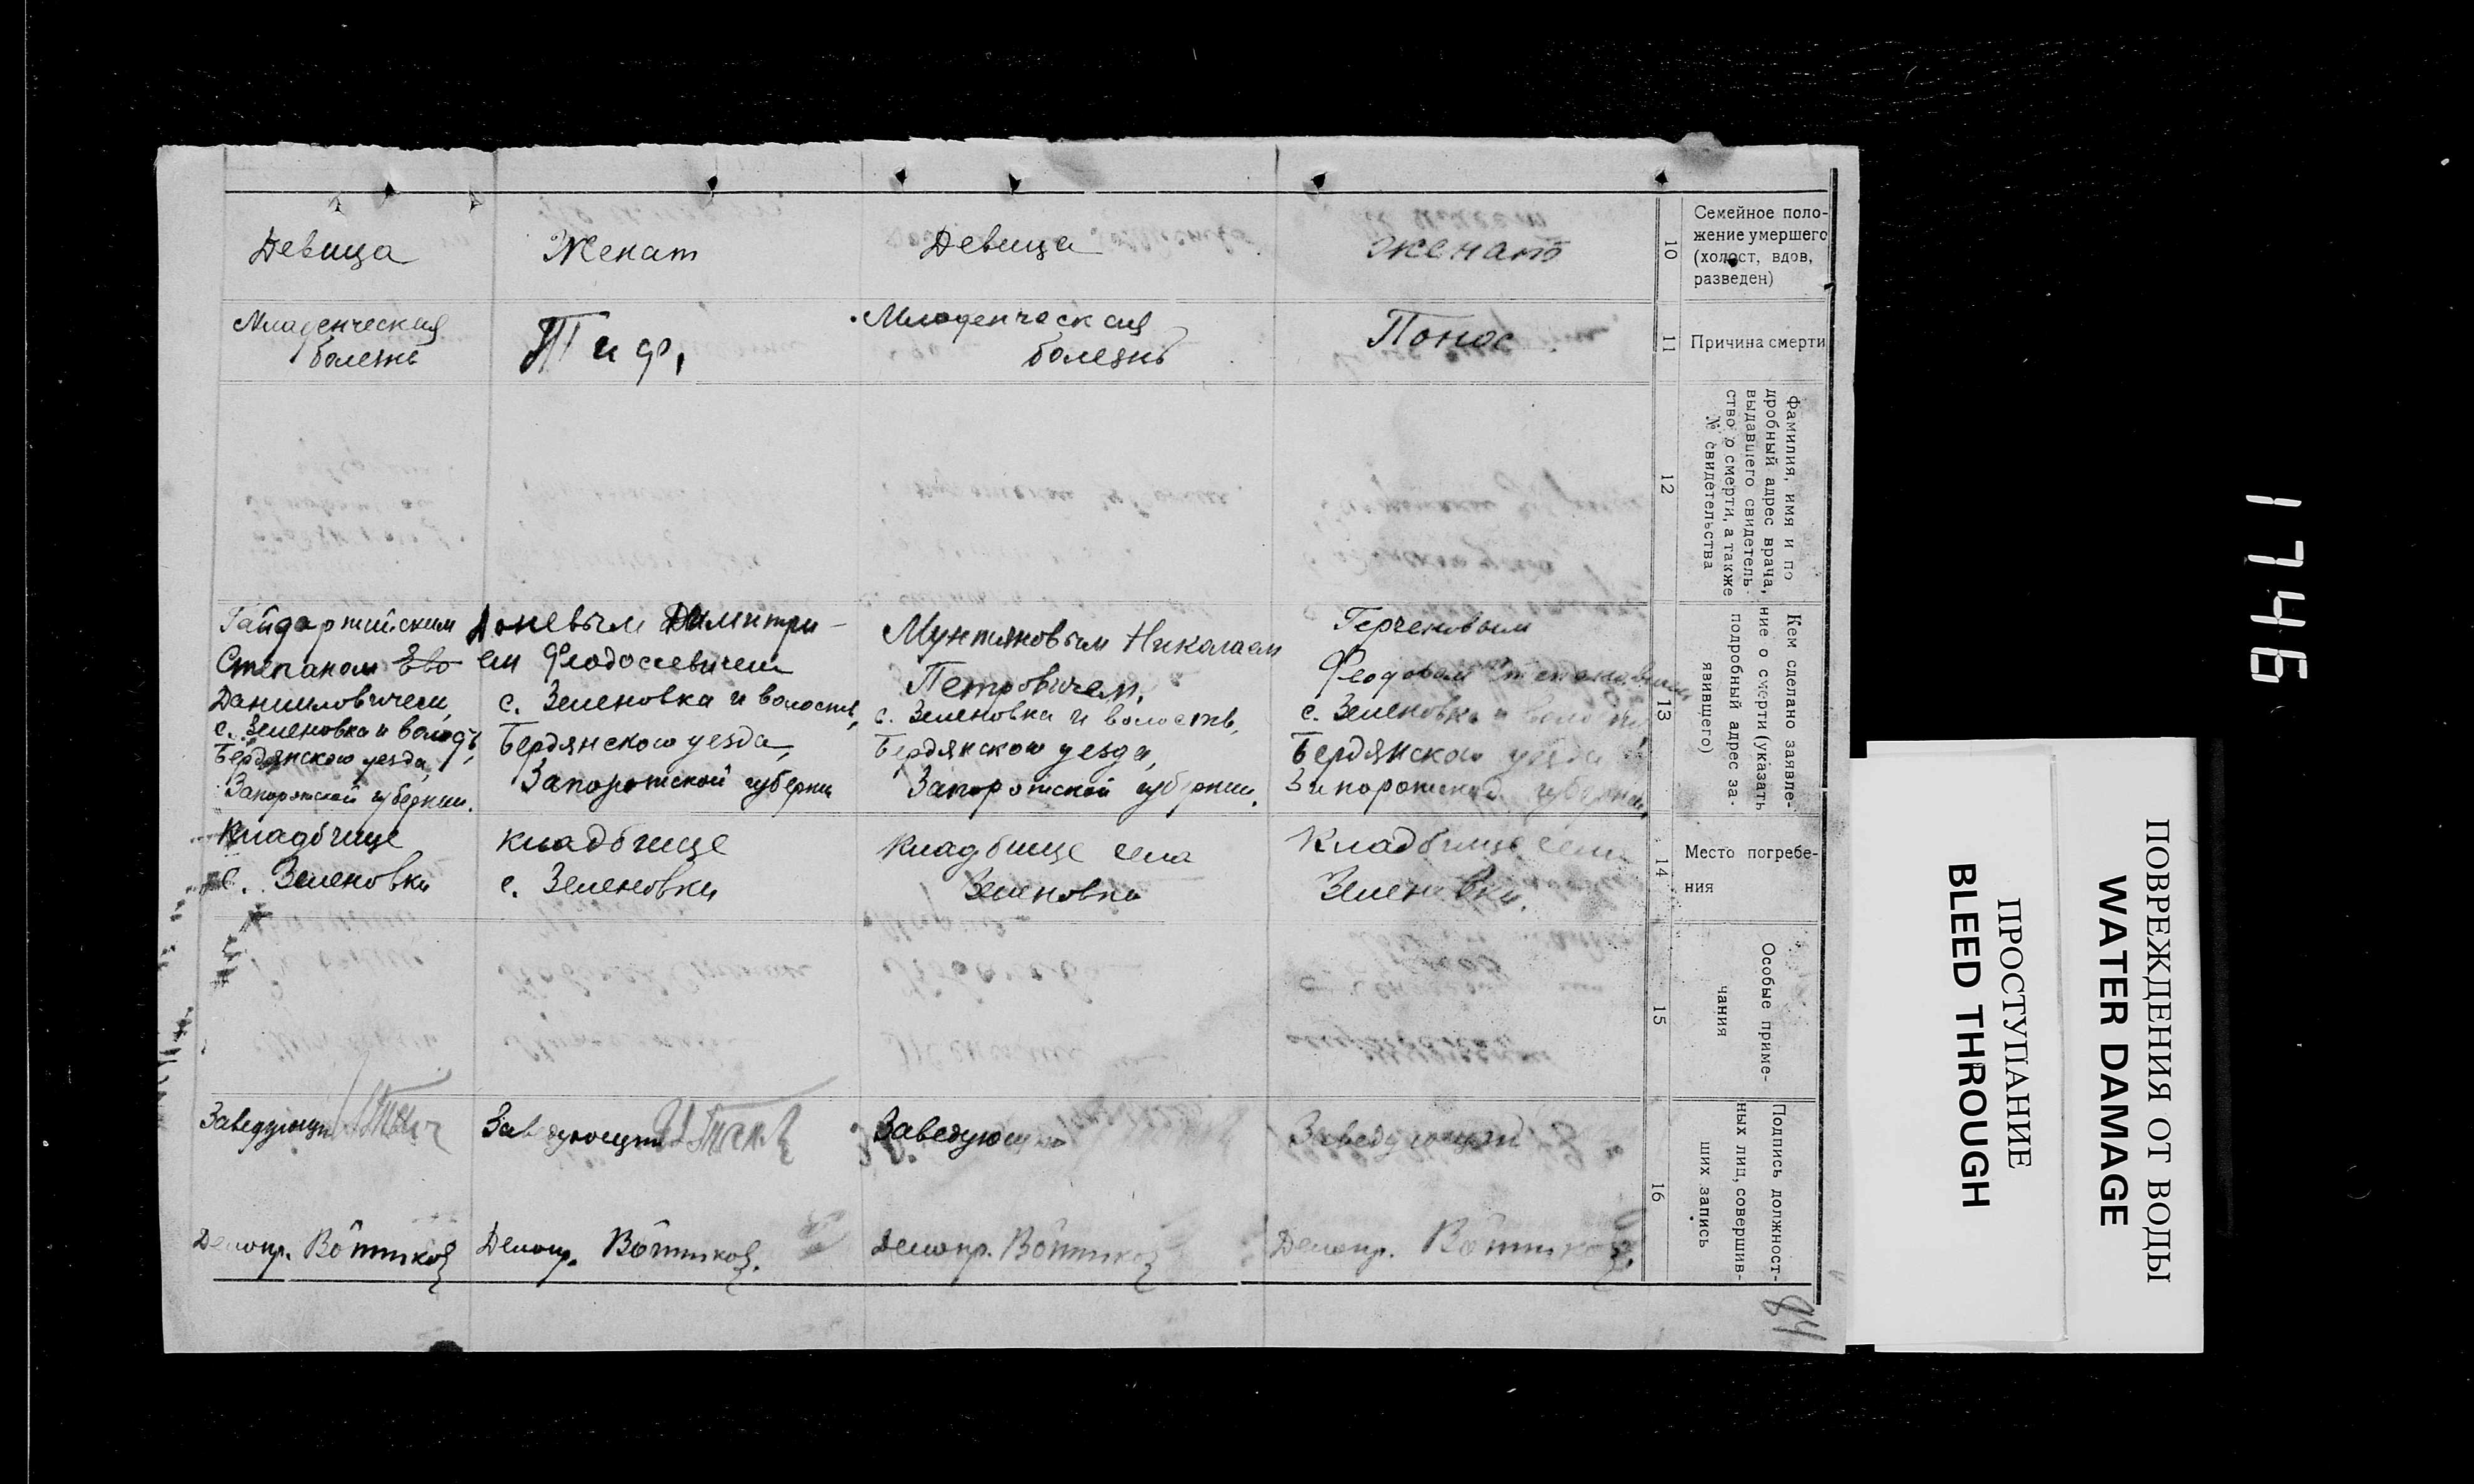 Девица
Женат
Девица
женат
10
Семейное поло-
жение умершего
(холост, вдов,
разведен)
Младенческая
болезнь
Тиф,
Младенческая
болезнь
Понос
11
Причина смерти
12
Фамилия, имя и по
дробный адрес врача,
выдавшего свидетель-
ство о смерти, а также
№ свидетельства
Степаном
Данииловичем
с. Зеленовка и волость,
Бердянского уезда,
Запорожской губернии.
Доневым Димитри-
ем Феодосиевичем
с. Зеленовка и волость,
Бердянского уезда,
Запорожской губернии
Мунтяновым Николаем
Петровичем,
с. Зеленовка и волость,
Бердянского уезда,
Запорожской губернии.
Герченовым
с. Зеленовка и волость,
Бердянского уезда
Запорожской губернии,
13
Кем сделано заявле-
ние о смерти (указать
подробный адрес за-
явившего)
Кладбище
с. Зеленовки
кладбище
с. Зеленовки
Кладбище села
Зеленовки
Кладбище села
Зеленовки.
14
Место погребе-
ния
15
Особые приме-
чания
Заведующий
Заведующий
Заведующий
Заведующий
Делопр. Войтиков
Делопр. Войтиков.
Делопр. Войтиков
Делопр. Войтиков.
16
Подпись должност-
ных лиц, совершив-
ших запись
ПРОСТУПАНИЕ
BLEED THROUGH
ПОВРЕЖДЕНИЯ ОТ ВОДЫ
WATER DAMAGE
1746